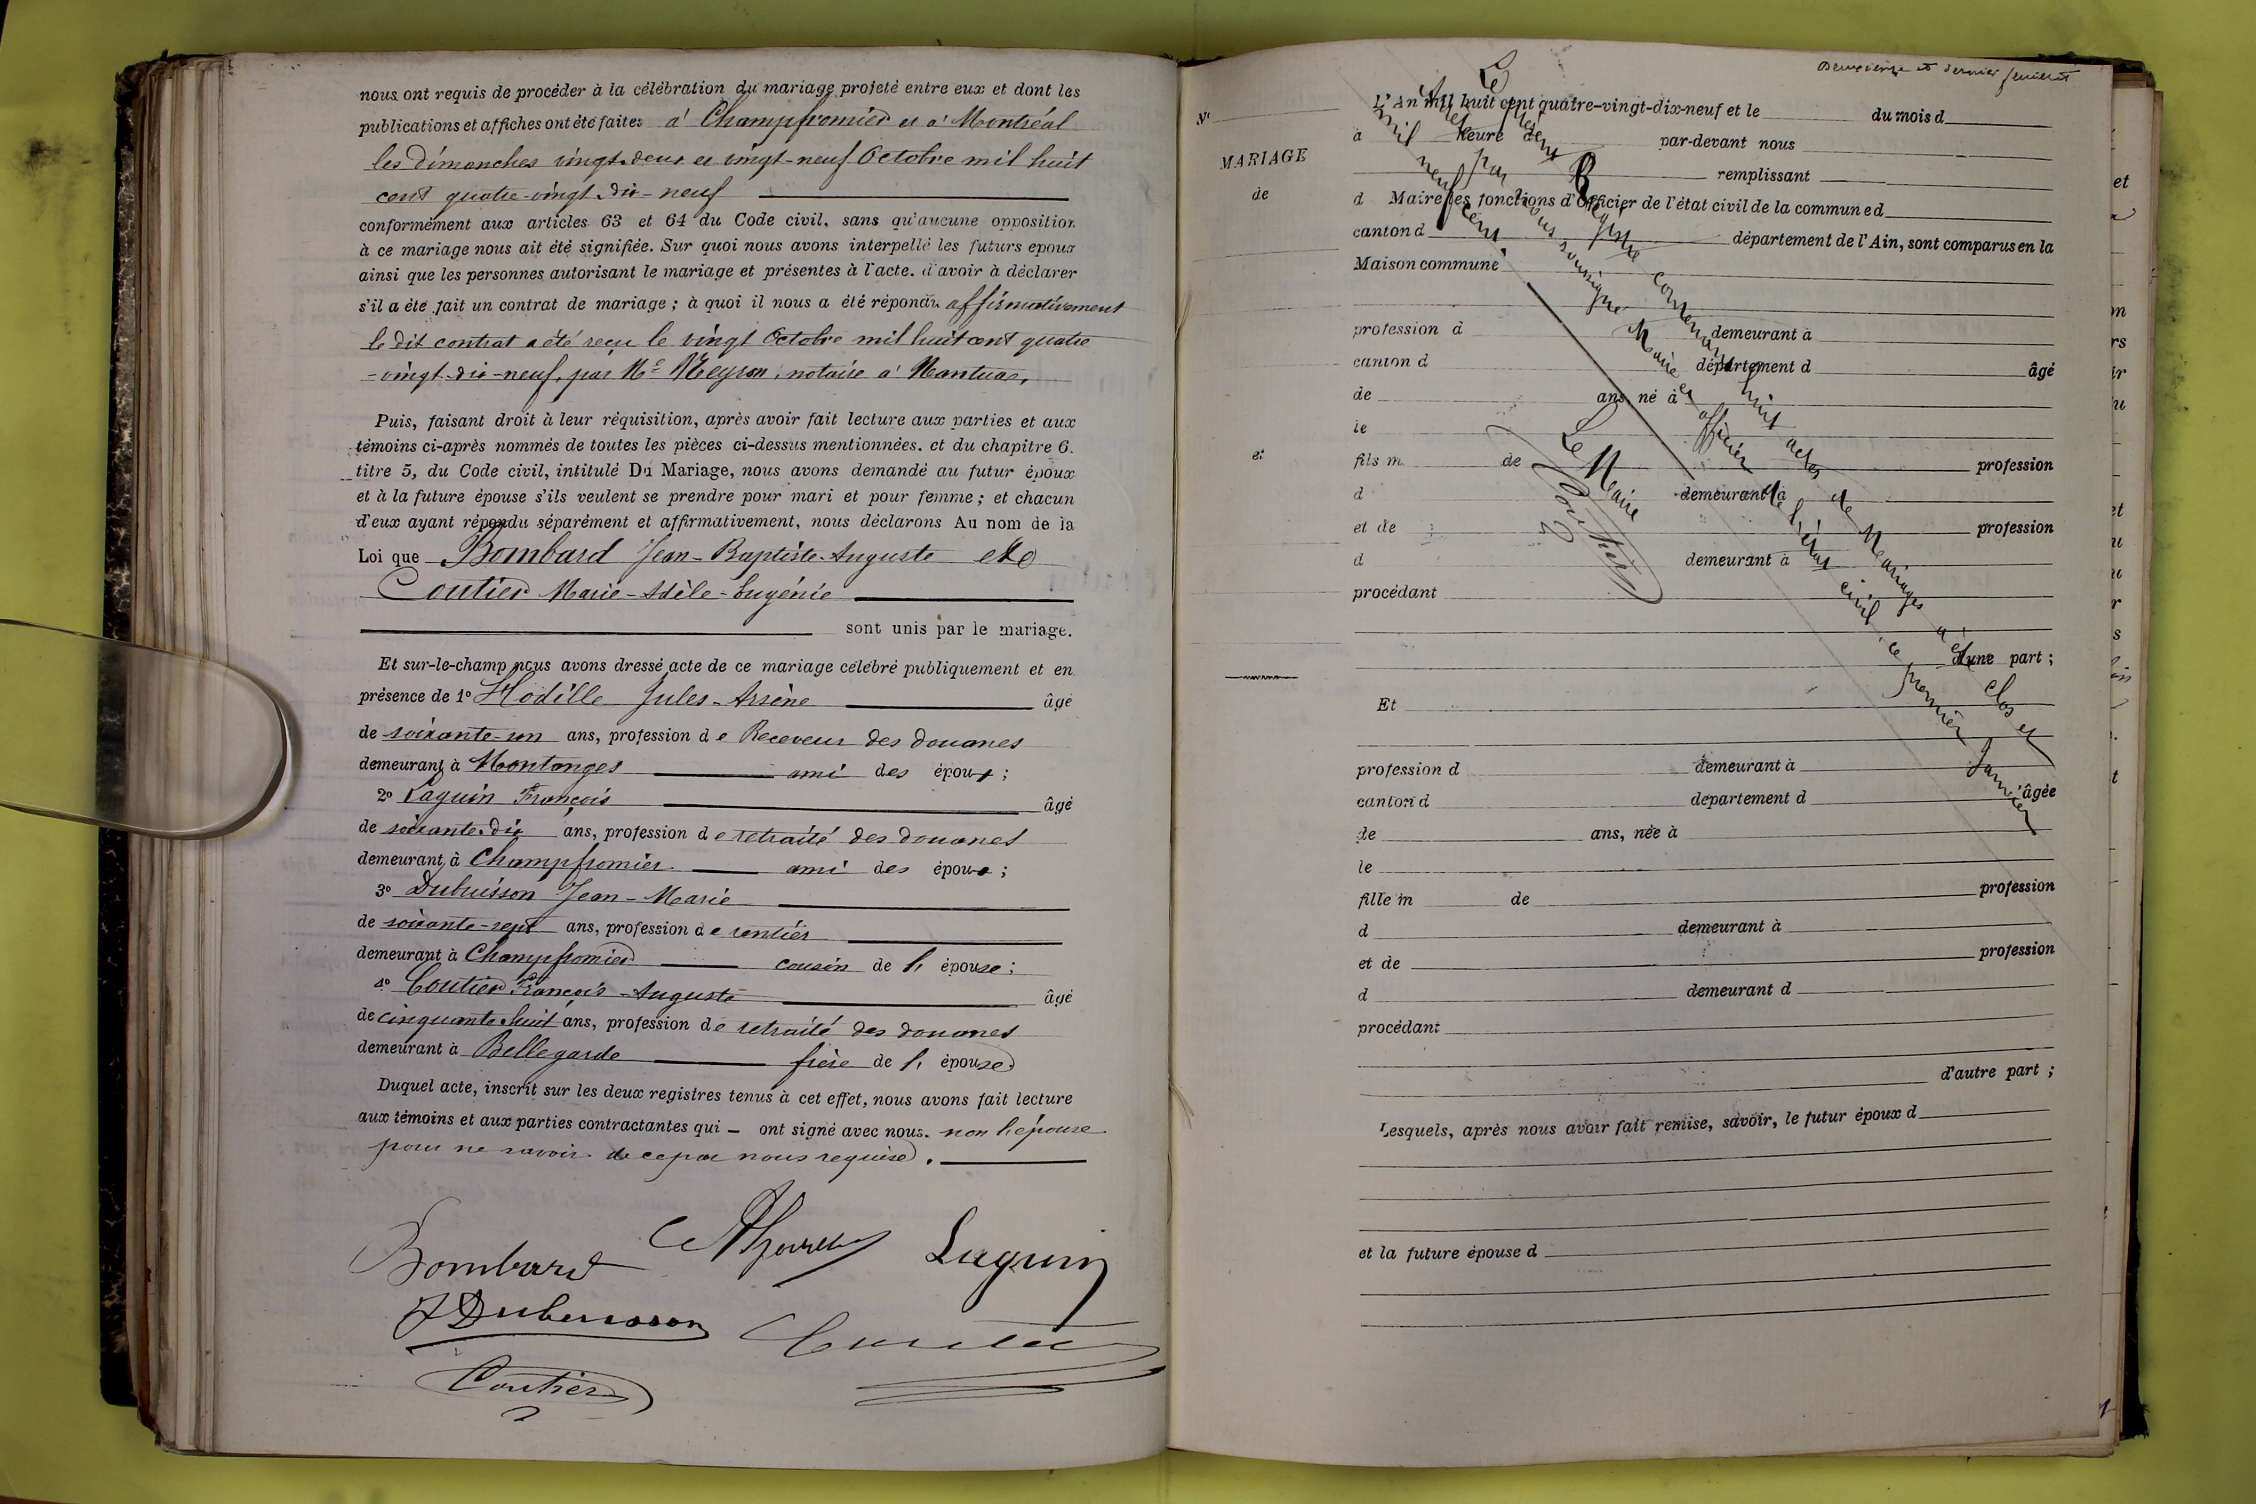 nous ont requis de procéder à la célébration du mariage projeté entre eux et dont les
publications et affiches ont été faites à Champfromier et à Montréal
les dimanches vingt-deux et vingt-neuf Octobre mil huit
cent quatre-vingt-dix-neuf
conformément aux articles 63 et 64 du Code civil, sans qu'aucune opposition
à ce mariage nous ait été signifiée. Sur quoi nous avons interpellé les futurs epoux
ainsi que les personnes autorisant le mariage et présentes à l'acte. d'avoir à déclarer
s'il a été fait un contrat de mariage ; à quoi il nous a été répondu affirmativement
le dit contrat a été reçu le vingt Octobre mil huit cent quatre
-vingt-dix-neuf, par Me Meyson, notaire à Nantua,
Puis, faisant droit à leur réquisition, après avoir fait lecture aux parties et aux
témoins ci-après nommés de toutes les pièces ci-dessus mentionnées. et du chapitre 6.
titre 5, du Code civil, intitulé Du Mariage, nous avons demandé au futur époux
et à la future épouse s'ils veulent se prendre pour mari et pour femme ; et chacun
d'eux ayant répondu séparément et affirmativement, nous déclarons Au nom de la
Loi que Bombard Jean-Baptiste-Auguste et
Coutier Marie-Adèle-Eugénie
sont unis par le mariage.
Et sur-le-champ nous avons dressé acte de ce mariage célébré publiquement et en
présence de 1° Hodille Jules-Arsène âgé
de soixante-un ans, profession de Receveur des douanes
demeurant à Montanges ami des époux ;
2° Laguin François âgé
de soixante-dix ans, profession de retraité des douanes
demeurant à Champfromier ami des époux ;
3° Dubuisson Jean-Marie
de soixante-sept ans, profession de rentier
demeurant à Champfromier cousin de l' épouse ;
4° Coutier François-Auguste âgé
de cinquante-huit ans, profession de retraité des douanes
demeurant à Bellegarde frère de l' épouse
Duquel acte, inscrit sur les deux registres tenus à cet effet, nous avons fait lecture
aux témoins et aux parties contractantes qui ont signé avec nous. non l'épouse
pour ne savoir de ce par nous requise.
Bombard Laguin
J Dubuisson
Coutier
Deuxième et dernier feuillet
N°
MARIAGE
de
et
L'An mil huit cent quatre-vingt-dix-neuf et le du mois d
à heure de par-devant nous
remplissant
d Maire les fonctions d'Officier de l'état civil de la commune d
canton d département de l'Ain, sont comparus en la
Maison commune
profession d demeurant à
canton d département d âgé
de ans, né à
le
fils m de profession
d demeurant à
et de profession
d demeurant à
procédant
d'une part ;
Et
profession d demeurant à
canton d département d âgée
de ans, née à
le
fille m de profession
d demeurant à
et de profession
d demeurant d
procédant
d'autre part ;
Lesquels, après nous avoir fait remise, savoir, le futur époux d
et la future épouse d
Le présent Registre contenant huit actes de Mariages a été clos et
par nous soussigné Maire et officier de l'état civil, ce premier Janvier
mil neuf cent.
Le Maire
Coutier